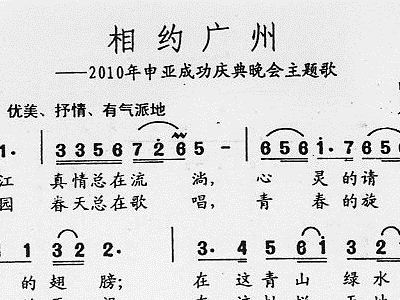 相约广州
——2010年申亚成功庆典晚会主题歌
优美、抒情、有气派地
1· 3356726 5 - 6561·7656
江 真情总在流 淌， 心 灵的请
园 春天总在歌 唱， 青 春的旋
1 32 2· 3·4561 32
的翅 膀； 在这青山 绿水